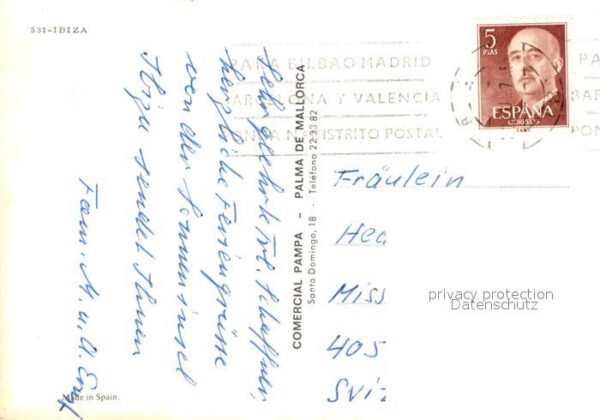 531-IBIZA
PARA BILBAO MADRID
BARCELONA Y VALENCIA
PONGA N. DISTRITO POSTAL
5
PTAS
ESPAÑA
CORREOS
PA
BAR
PON
Sehr geehrte Frl. Schaffner,
herzliche Feriengrüsse
von der Sonneninsel
Ibiza sendet Ihnen
Fam. M. u. A.
COMERCIAL PAMPA - PALMA DE MALLORCA
Santo Domingo, 18 - Teléfono 22 33 82
Fräulein
Hed
Miss
405
Sviz
privacy protection
Datenschutz
Made in Spain.